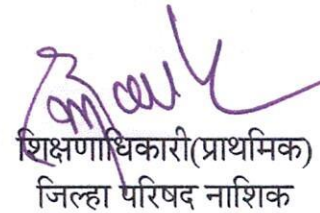 शिक्षणाधिकारी(प्राथमिक)
जिल्हा परिषद नाशिक